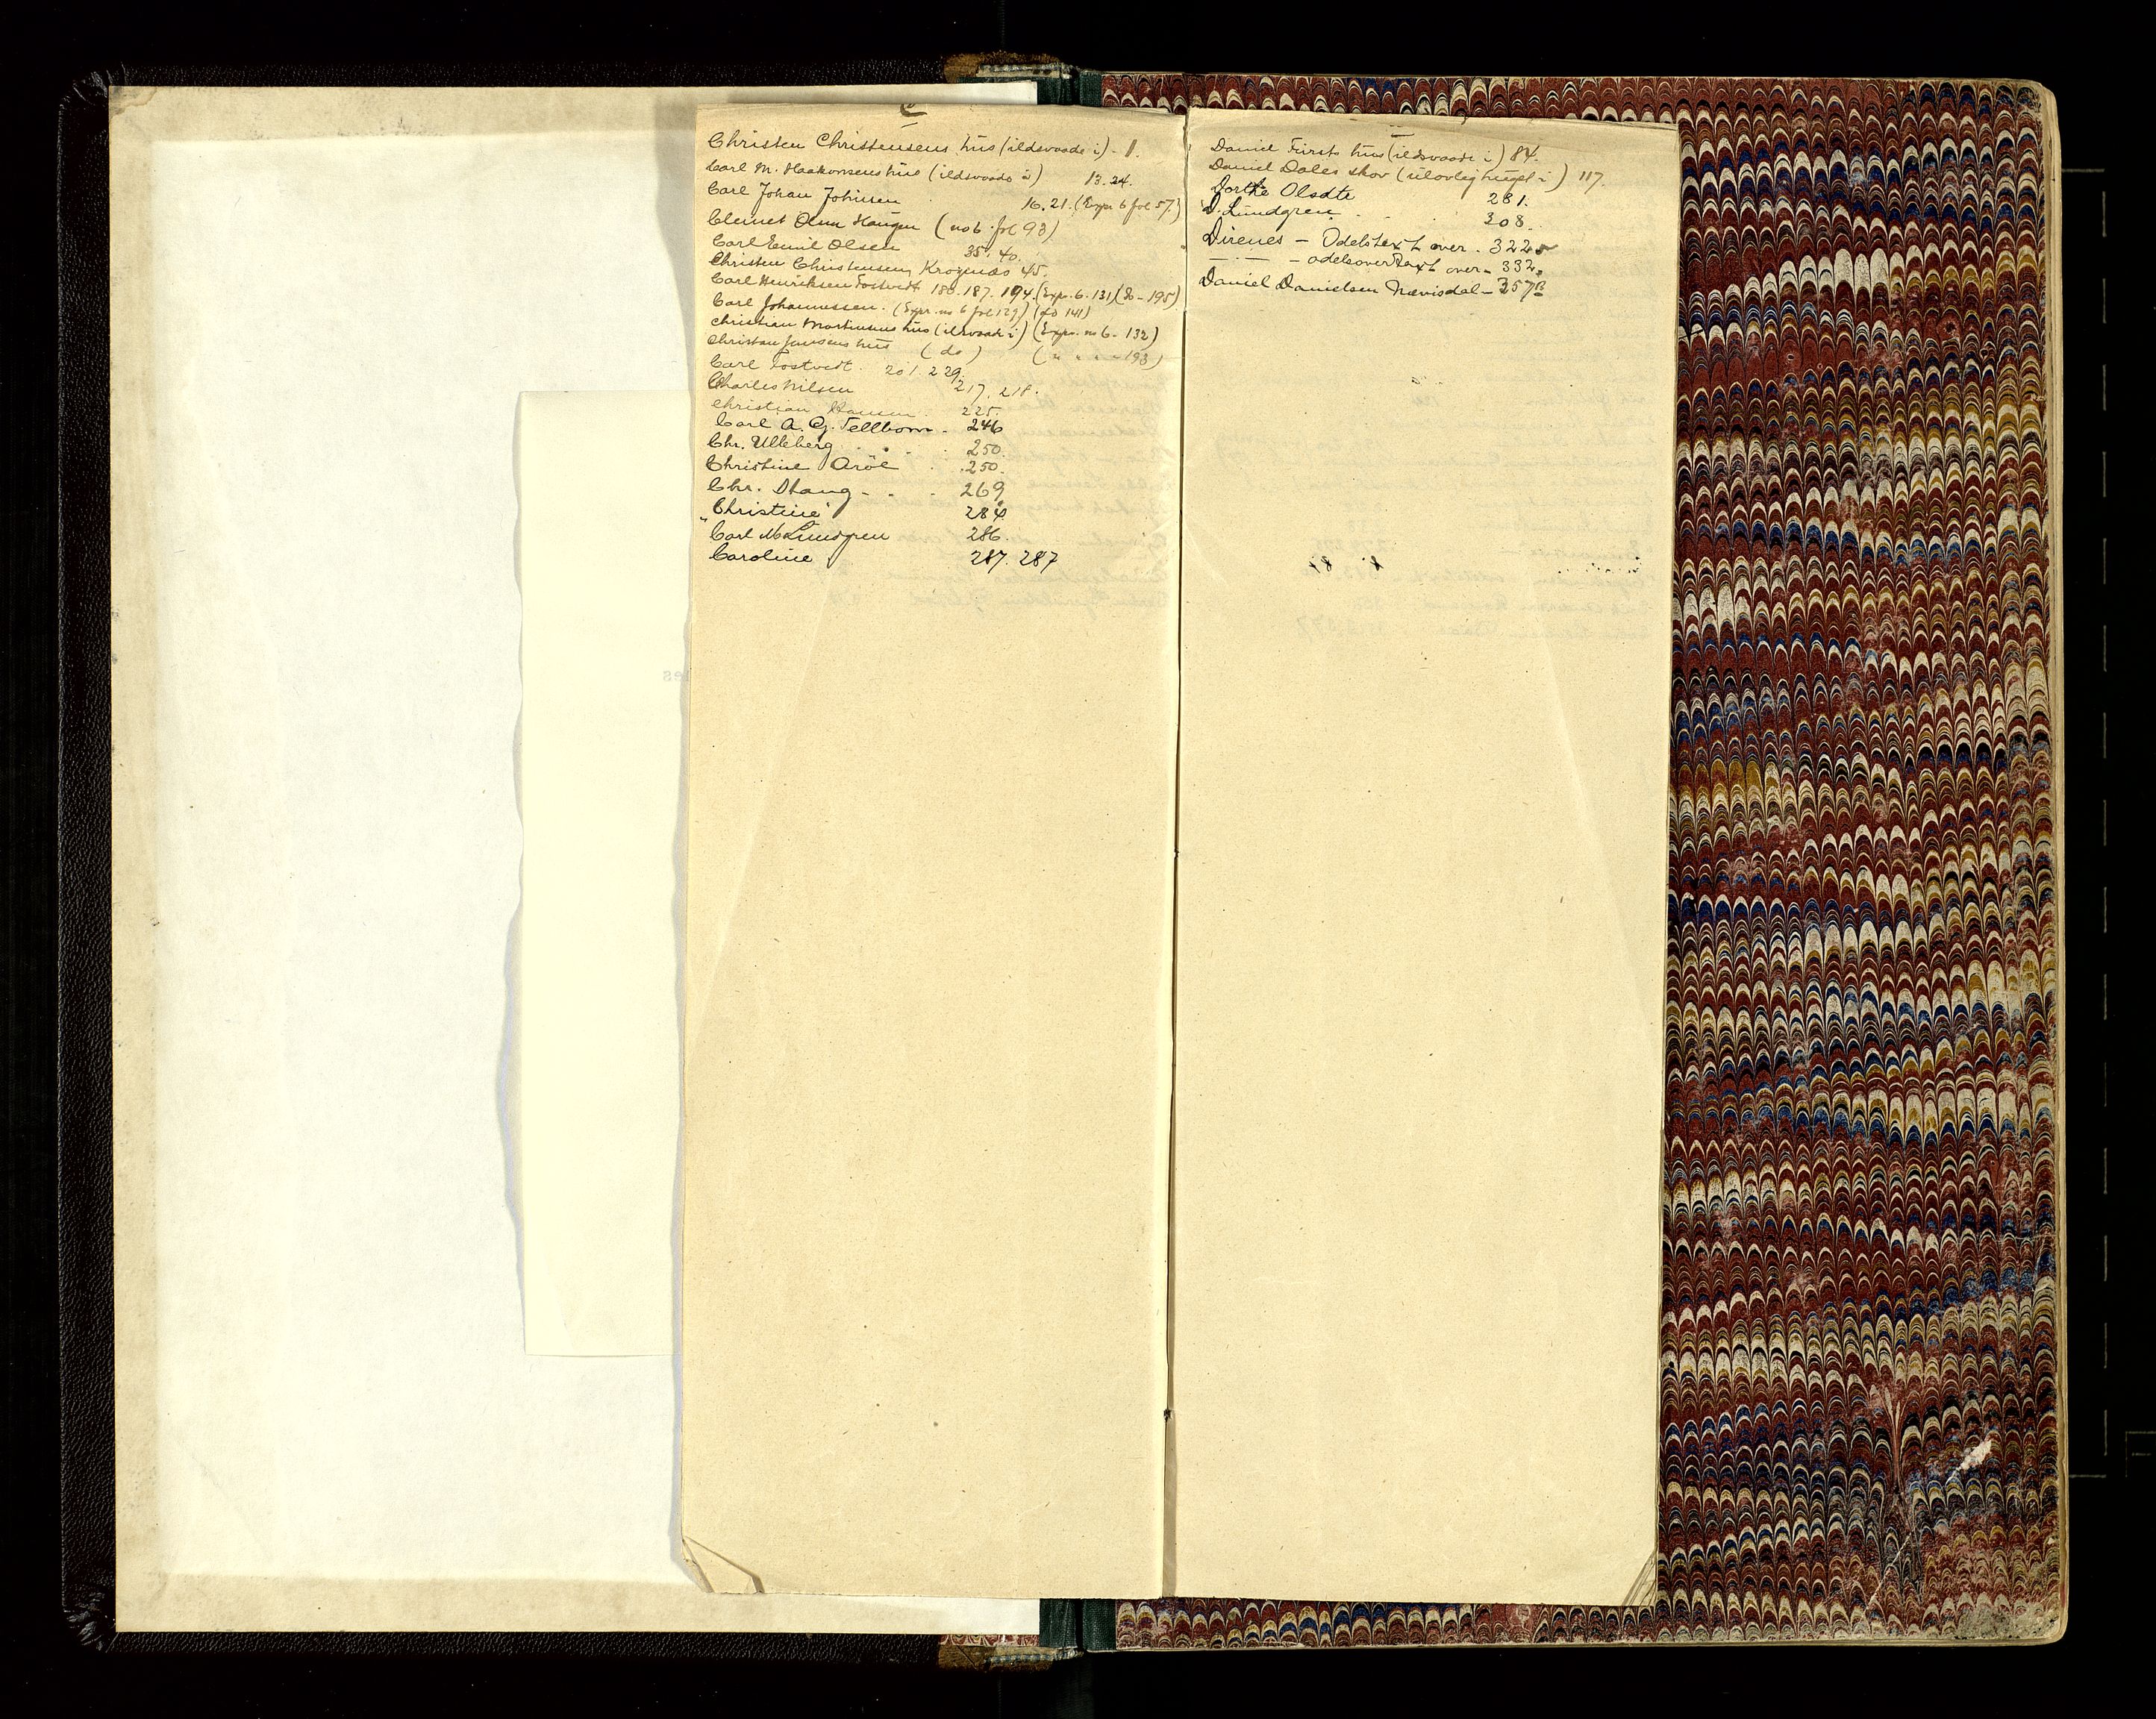 C
Christen Christensens hus (ildsvaade i) - 1.
Carl M. Haakonsens hus (ildsvaade i) 13. 24.
Carl Johan Johnsen 16. 21. (Expr 6 fol 57.)
Clemet Olsen Haugen (no 6 fol 93)
Carl Emil Olsen 35. 40.
Christen Christensen, Krogenæs 45.
Carl Henriksen Tostvedt 186. 187. 194. (Exp. 6. 131) (Do - 195)
Carl Johannessen. (Expr. no 6 fol 129) (do 141)
Christian Martinsens hus (ildsvaade i) (Expr. no 6 - 132)
Christian Jensens hus (do) (" " " - 193)
Carl Tostvedt. 201. 229.
Charles Nilsen 217. 218.
Christian Hansen. 225.
Carl A. G. Tellbom - 246
Chr. Ulleberg . . . 250.
Christine Aröe . . 250.
Chr. Stang - . . 269
"Christine" 284
Carl M Lundgren 286
Caroline 287. 287
D
Daniel Fürsts hus (ildsvaade i) 84.
Daniel Dales skov (ulovlig hugst i) 117.
Dorthe Olsdtr 281.
D. Lundgren . . . 308.
Direnes - Odelstaxt over . 322
— " — - odelsovertaxt over - 332
Daniel Danielsen Nævisdal - 357